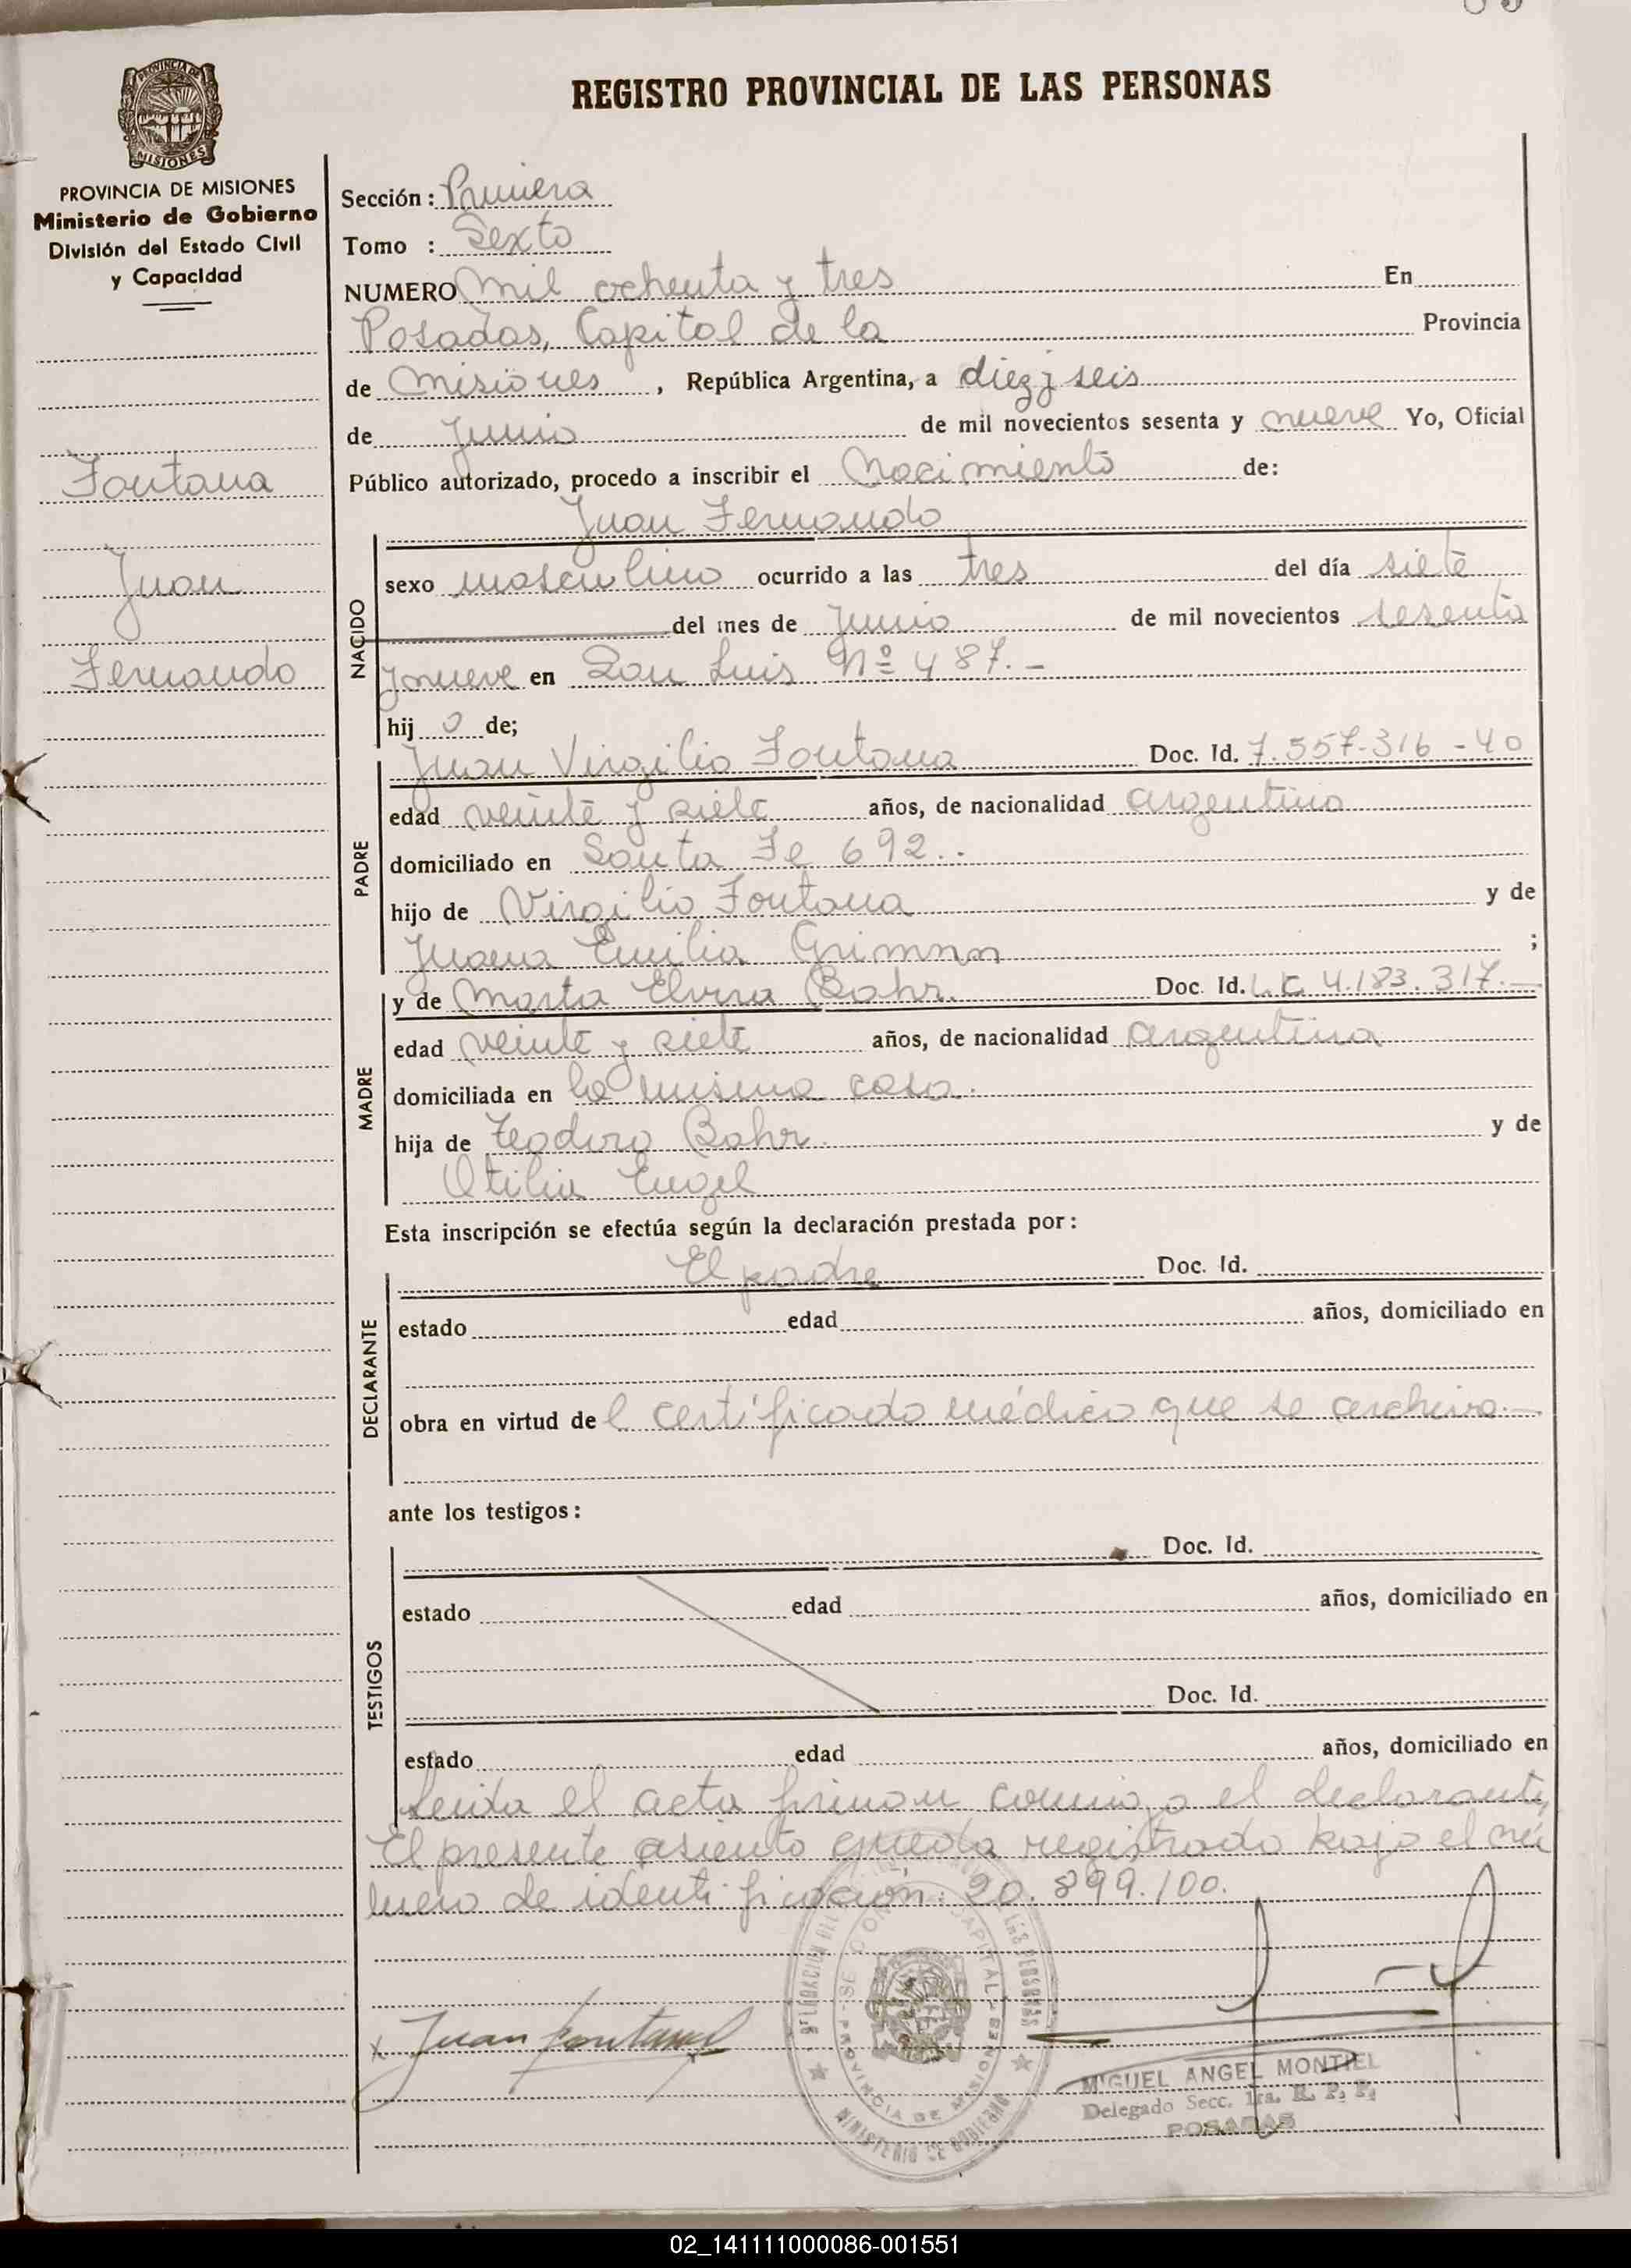 REGISTRO PROVINCIAL DE LAS PERSONAS
PROVINCIA DE
MISIONES
PROVINCIA DE MISIONES
Ministerio de Gobierno
División del Estado Civil
y Capacidad
Fontana
Juan
Fernando
Sección: Primera
Tomo : Sexto
NUMERO mil ochenta y tres En
Posadas, Capital de la Provincia
de Misiones, República Argentina, a diez y seis
de Junio de mil novecientos sesenta y nueve Yo, Oficial
Público autorizado, procedo a inscribir el Nacimiento de:
Juan Fernando
NACIDO
sexo masculino ocurrido a las tres del día siete
del mes de Junio de mil novecientos sesenta
y nueve en San Luis Nº 487.-
hij o de;
PADRE
Juan Virgilio Fontana Doc. Id. 7.557.316 - 40
edad veinte y siete años, de nacionalidad argentino
domiciliado en Santa Fe 692..
hijo de Virgilio Fontana y de
Juana Emilia Grimmn ;
MADRE
y de Marta Elvira Bahr. Doc. Id. L.C. 4.183.317.-
edad veinte y siete años, de nacionalidad argentina
domiciliada en la misma casa.
hija de Teodoro Bahr. y de
Otilia Engel
Esta inscripción se efectúa según la declaración prestada por:
DECLARANTE
El padre Doc. Id.
estado edad años, domiciliado en
obra en virtud de l certificado médico que se archiva.-
ante los testigos:
TESTIGOS
Doc. Id.
estado edad años, domiciliado en
Doc. Id.
estado edad años, domiciliado en
Leida el acta firman conmigo el declarante,
El presente asiento queda registrado bajo el nú
mero de identificación: 20.899.100.
x Juan Fontana
CAPITAL
PROVINCIA DE MISIONES
MINISTERIO DE GOBIERNO
MIGUEL ANGEL MONTIEL
Delegado Secc. 1ra. R. P. P.
POSADAS
02_141111000086-001551